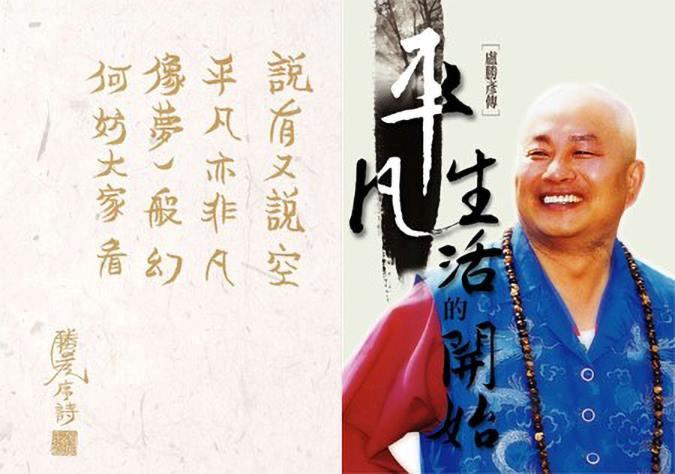 說有又說空
平凡亦非凡
像夢一般幻
何妨大家看
勝彥序詩
[盧勝彥傳]
平凡
生活的開始